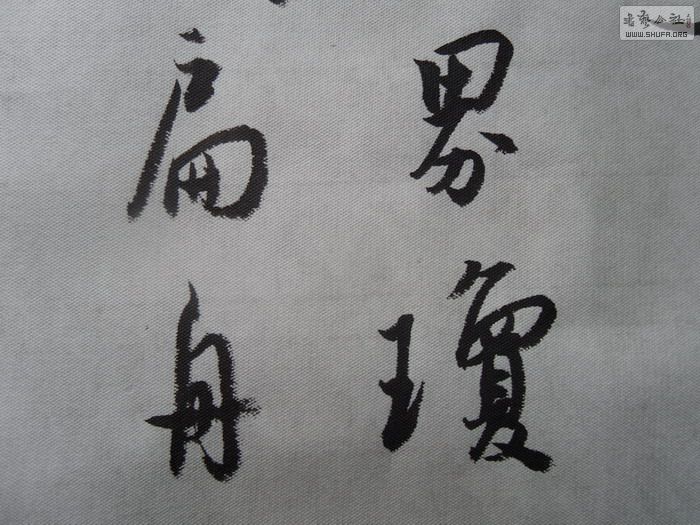 界瓊
扁舟
书艺公社
WWW.SHUFA.ORG